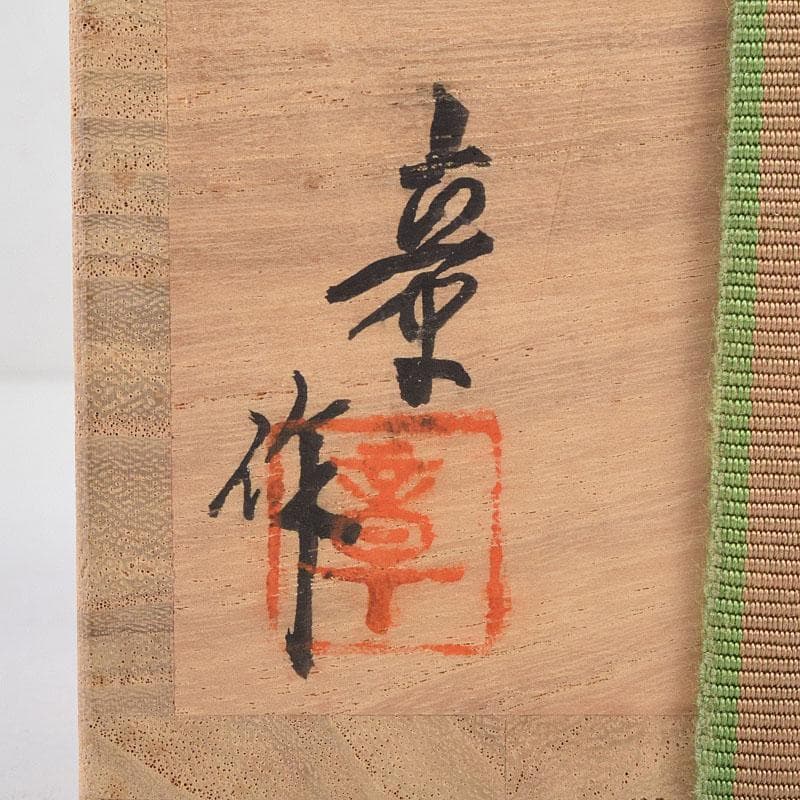 章
作
章